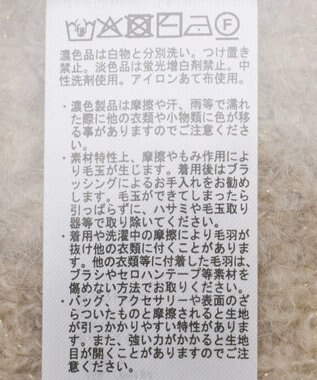 濃色品は白物と分別洗い。つけ置き
禁止。淡色品は蛍光増白剤禁止。中
性洗剤使用。アイロンあて布使用。
・濃色製品は摩擦や汗、雨等で濡れ
た際に他の衣類や小物類に色が移
る事がありますのでご注意くださ
い。
・素材特性上、摩擦やもみ作用によ
り毛玉が生じます。着用後はブラ
ッシングによるお手入れをお勧め
します。毛玉ができてしまったら
引っぱらずに、ハサミや毛玉取り
器等で取り除いてください。
・着用や洗濯中の摩擦により毛羽が
抜け他の衣類に付くことがありま
す。他の衣類等に付着した毛羽は、
ブラシやセロハンテープ等素材を
傷めない方法でお取りください。
・バッグ、アクセサリーや表面のざ
らついたものと摩擦されると生地
が引っかかりやすい特性がありま
す。また、強い力がかかると生地
目が開くことがありますのでご注
意ください。